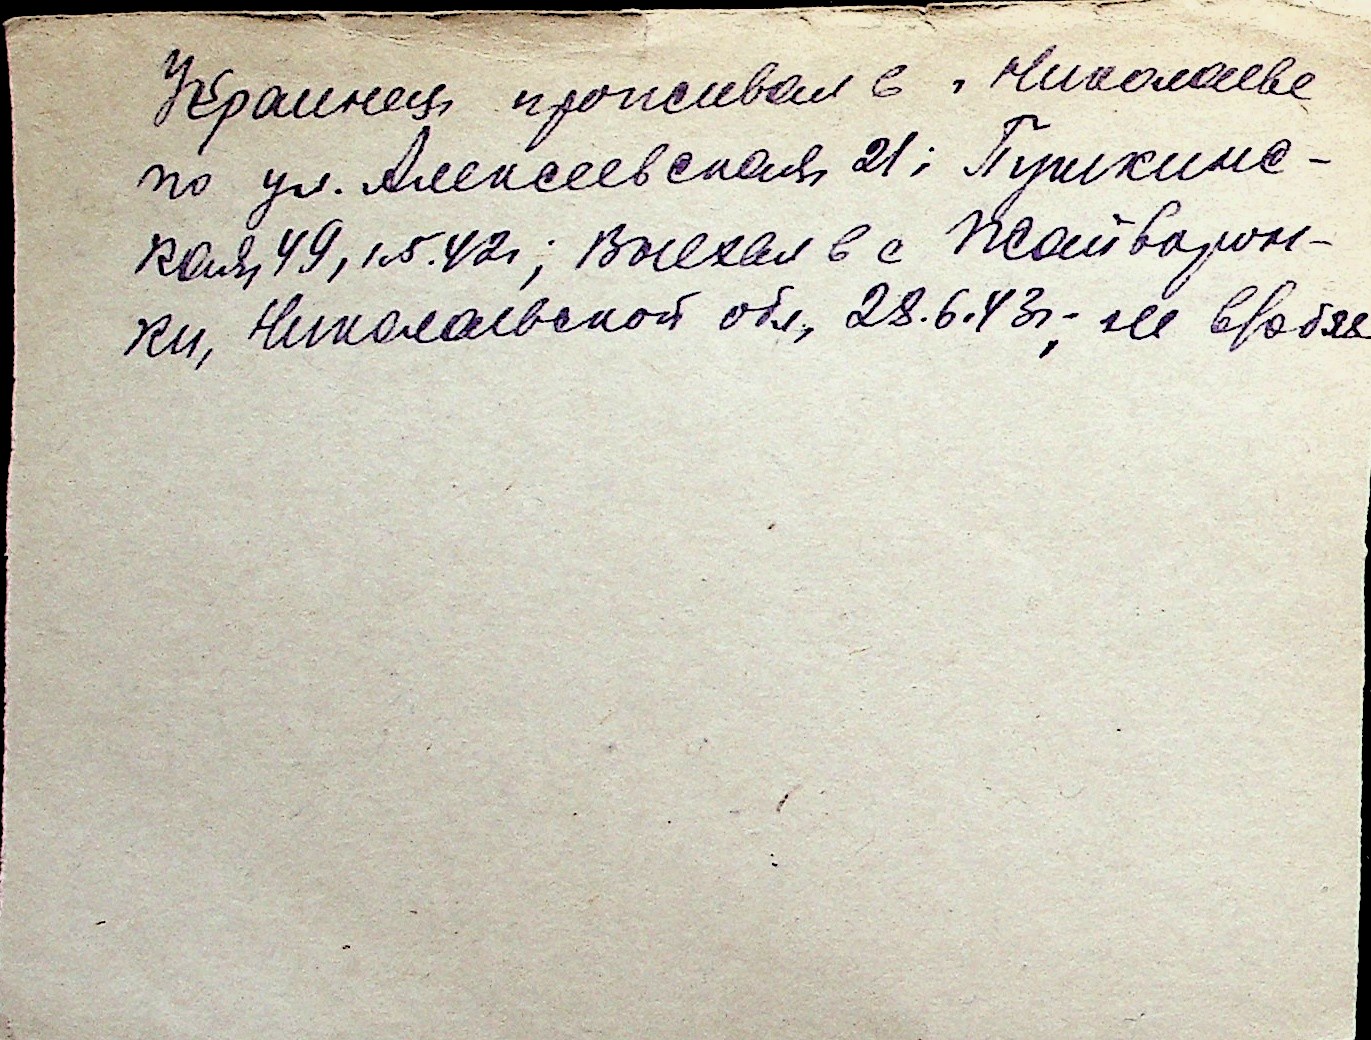 Украинец, проживал в г. Николаеве
по ул. Алексеевская, 21; Пушкинс-
кая, 49, 1.5.42г.; Выехал в с Жайворон-
ки, Николаевской обл., 28.6.43г.; не